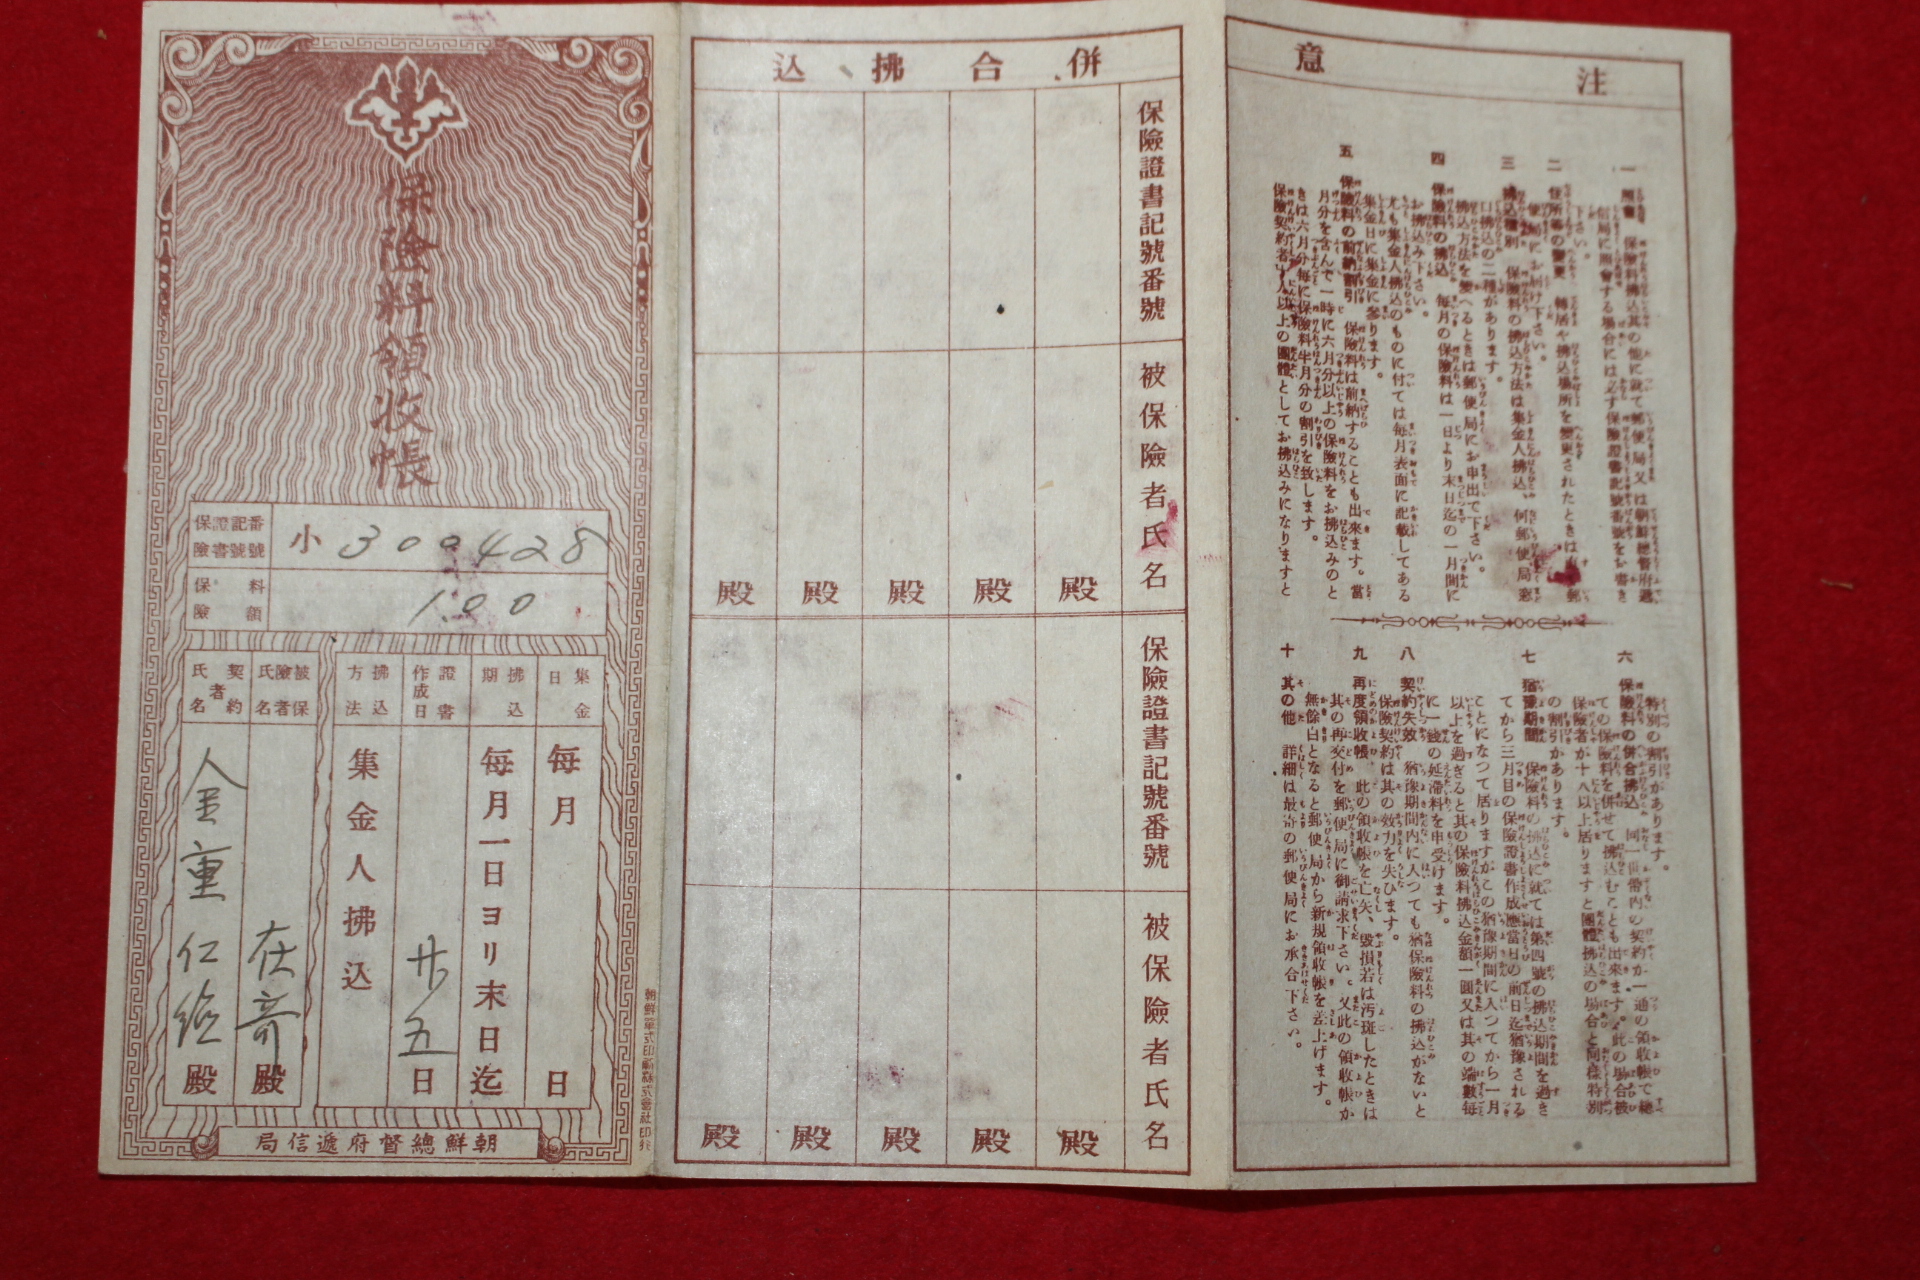 保險料領收帳
保險證書記號番號
小300428
保險料額
1.00
集金日
每月
日
拂込期
每月一日ヨリ末日迄
證書作成日
廿五日
拂込方法
集金人拂込
被保險者氏名
殿
契約者氏名
金重仁
殿
朝鮮總督府遞信局
併合拂込
保險證書記號番號
被保險者氏名
殿
殿
殿
殿
殿
保險證書記號番號
被保險者氏名
殿
殿
殿
殿
殿
注意
一 照會 保險料拂込其の他に就て郵便局又は朝鮮總督府遞
信局に照會する場合には必ず保險證書記號番號をお書き
下さい。
二 住所等の變更 轉居や拂込場所を變更されたときは
便局にお届け下さい。
三 拂込種別 保險料の拂込方法は集金人拂込、何郵便局窓
口拂込の二種があります。
拂込方法を變へるときは郵便局にお申出で下さい。
四 保險料の拂込 每月の保險料は一日より末日迄の一月間に
お拂込み下さい。
尤も集金人拂込のものに付ては每月表面に記載してある
集金日に集金に參ります。
五 保險料の前納割引 保險料は前納することも出來ます。當
月分を含んで一時に六月分以上の保險料をお拂込みのと
きは六月分每に保險料半月分の割引を致します。
保險契約者十人以上の團體としてお拂込みになりますと
特別の割引があります。
六 保險料の併合拂込 同一世帶内の契約が一通の領收帳で總
ての保險料を併せて拂込むことも出來ます。此の場合被
保險者が十人以上居りますと團體拂込の場合と同樣特別
の割引があります。
七 猶豫期間 保險料の拂込に就ては第四號の拂込期間を過き
てから三月目の保險證書作成應當日の前日迄猶豫される
ことになつて居りますがこの猶豫期間に入つてから一月
以上を過ぎると其の保險料拂込金額一圓又は其の端數每
に一錢の延滯料を申受けます。
八 契約失效 猶豫期間内に入つても猶保險料の拂込がないと
保險契約は其の效力を失ひます。
九 再度領收帳 此の領收帳を亡失、毀損若は汚斑したときは
其の再交付を郵便局に御請求下さい。又此の領收帳か
無餘白となると郵便局から新規領收帳を差上げます。
十 其の他 詳細は最寄の郵便局にお承合下さい。